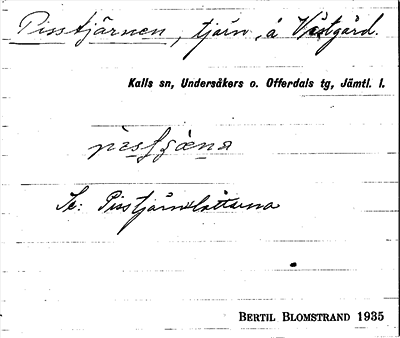 Pisstjärnen, tjärn, å Västgård.
Kalls sn, Undersåkers o. Offerdals tg, Jämtl. l.
Se: Pisstjärnslåttarna
BERTIL BLOMSTRAND 1935